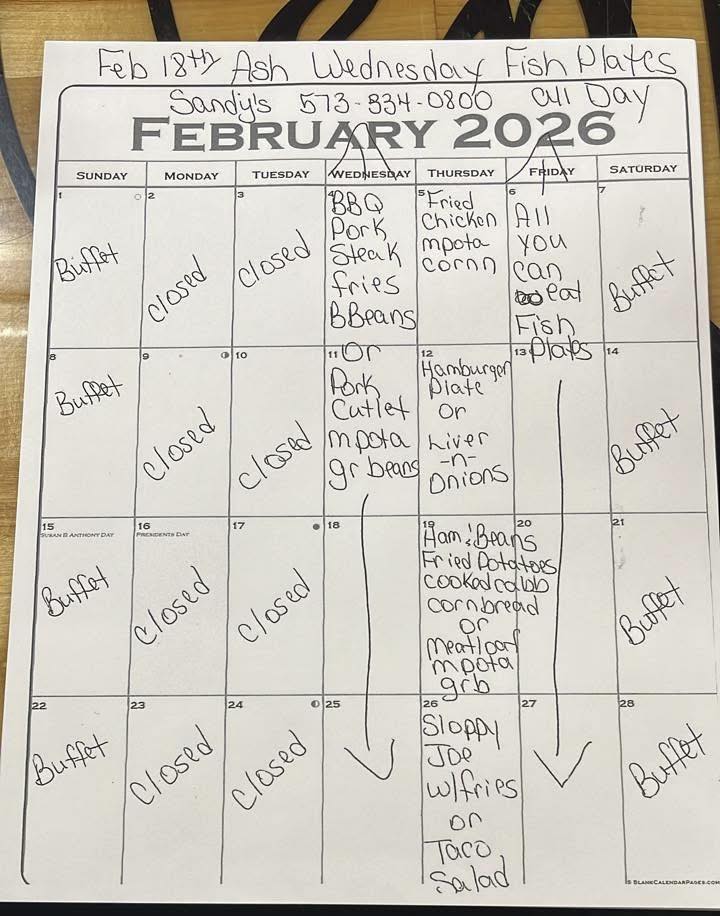 Feb 18th Ash Wednesday Fish Plates
Sandy's 573-334-0800 all Day
FEBRUARY 2026
SUNDAY MONDAY TUESDAY WEDNESDAY THURSDAY FRIDAY SATURDAY
1
Buffet
2
Closed
3
Closed
4
BBQ
Pork
Steak
fries
BBeans
Or
Pork
Cutlet
mpota
gr beans
5
Fried
Chicken
mpota
cornn
6
All
you
can
eat
Fish
Plates
7
Buffet
8
Buffet
9
Closed
10
Closed
11
12
Hamburger
Plate
or
Liver
-n-
Onions
13
14
Buffet
15
SUSAN B ANTHONY DAY
Buffet
16
PRESIDENTS DAY
Closed
17
Closed
18
19
Ham & Beans
Fried Potatoes
cooked cabb
cornbread
or
meatloaf
mpota
grb
20
21
Buffet
22
Buffet
23
Closed
24
Closed
25
26
Sloppy
Joe
w/fries
or
Taco
Salad
27
28
Buffet
© BLANKCALENDARPAGES.COM